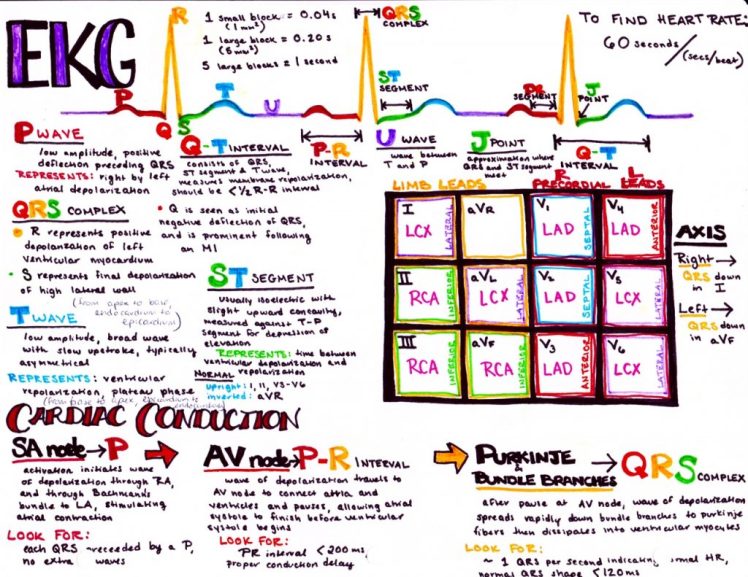 EKG
P
R
Q
S
T
U
1 small block = 0.04s
(1 mm²)
1 large block = 0.20s
(5 mm²)
5 large blocks = 1 second
QRS
COMPLEX
ST
SEGMENT
P-R
INTERVAL
PR
SEGMENT
J
POINT
Q-T
INTERVAL
TO FIND HEART RATE:
60 seconds/(secs/beat)
P WAVE
low amplitude, positive
deflection preceding QRS
REPRESENTS: right by left
atrial depolarization
Q-T INTERVAL
consists of QRS,
ST segment & T wave,
measures membrane repolarization,
should be < 1/2 R-R interval
U WAVE
wave between
T and P
J POINT
approximation where
QRS and ST segment
meet
QRS COMPLEX
R represents positive
depolarization of left
ventricular myocardium
S represents final depolarization
of high lateral wall
(from apex to base,
endocardium to
epicardium)
Q is seen as initial
negative deflection of QRS,
and is prominent following
an MI
T WAVE
low amplitude, broad wave
with slow upstroke, typically
asymmetrical
REPRESENTS: ventricular
repolarization, plateau phase
(from base to apex, epicardium to
endocardium)
ST SEGMENT
usually isoelectric with
slight upward concavity,
measured against T-P
segment for depression or
elevation
REPRESENTS: time between
ventricular depolarization and
repolarization
NORMAL
upright: I, II, V3-V6
inverted: aVR
LIMB LEADS
R PRECORDIAL L LEADS
I
LCX
LATERAL
aVR
V1
LAD
SEPTAL
V4
LAD
ANTERIOR
II
RCA
INFERIOR
aVL
LCX
LATERAL
V2
LAD
SEPTAL
V5
LCX
LATERAL
III
RCA
INFERIOR
aVF
RCA
INFERIOR
V3
LAD
ANTERIOR
V6
LCX
LATERAL
AXIS
Right →
QRS down
in I
Left →
QRS down
in aVF
CARDIAC CONDUCTION
SA node → P
activation initiates wave
of depolarization through RA,
and through Bachmann's
bundle to LA, stimulating
atrial contraction
LOOK FOR:
each QRS preceeded by a P,
no extra waves
AV node → P-R INTERVAL
wave of depolarization travels to
AV node to connect attria and
ventricles and pauses, allowing atrial
systole to finish before ventricular
systole begins
LOOK FOR:
PR interval < 200 ms,
proper conduction delay
PURKINJE
&
BUNDLE BRANCHES → QRS COMPLEX
after pause at AV node, wave of depolarization
spreads rapidly down bundle branches to purkinje
fibers then dissipates into ventricular myocytes
LOOK FOR:
~ 1 QRS per second indicating normal HR,
normal QRS shape < 120 ms